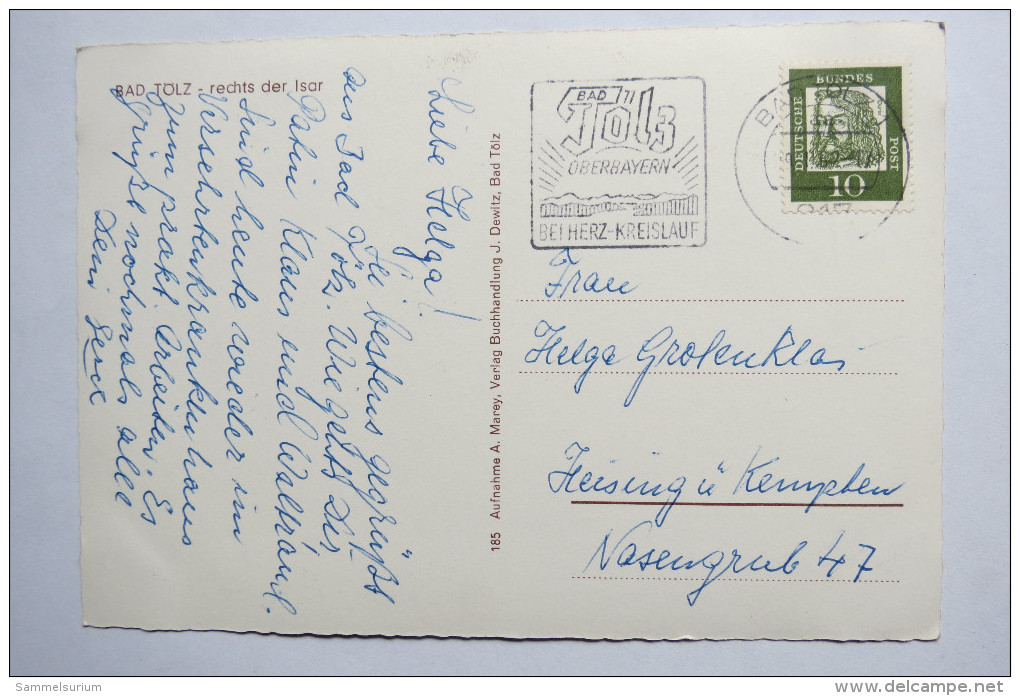 BAD TÖLZ - rechts der Isar
Liebe Helga!
Sei bestens gegrüßt
aus Bad Tölz. Wie geht's Dir
Dahin Klaus und Waltraud.
Sind heute wieder im
Versehrtenkrankenhaus
zum prakt. Arbeiten. Es
Grüßt nochmals alle
Deine
185 Aufnahme A. Marey, Verlag Buchhandlung J. Dewitz, Bad Tölz
BAD
Tölz
OBERBAYERN
BEI HERZ-KREISLAUF
BAD TÖLZ
DEUTSCHE
BUNDES
POST
10
Frau
Helga Grotenklas
Heising ü Kempten
Nasengrub 47
Sammelsurium
www.delcampe.net